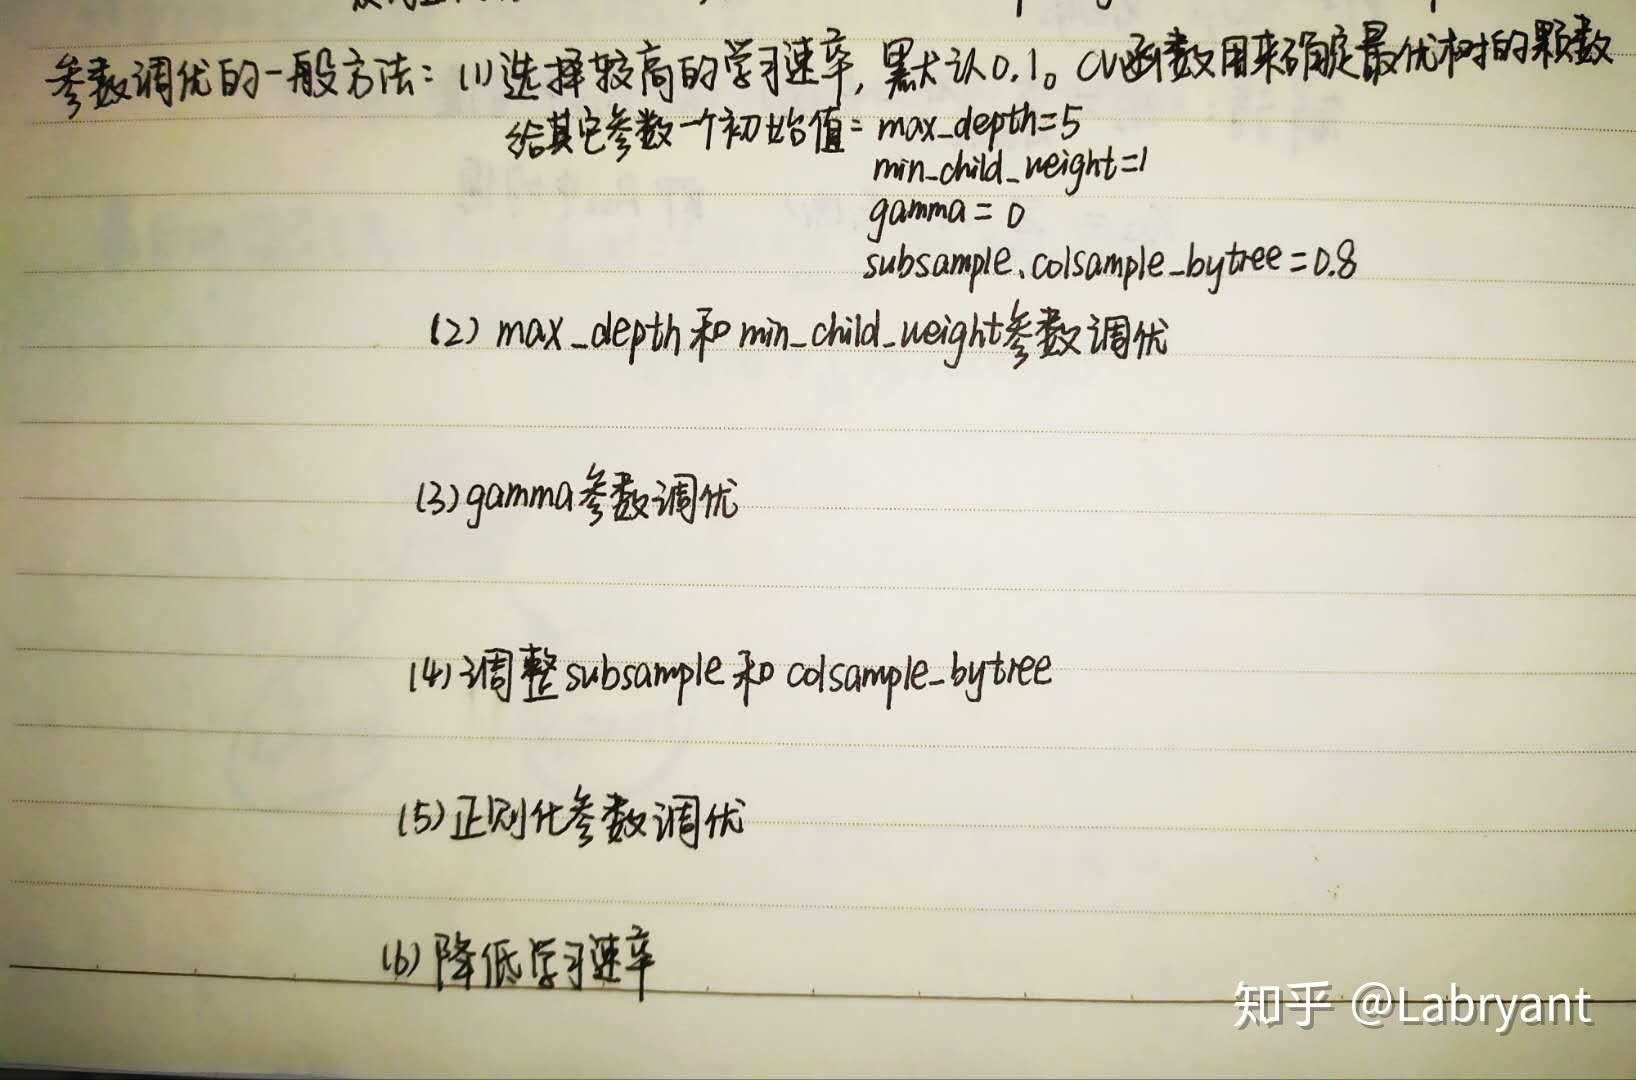 参数调优的一般方法：(1)选择较高的学习速率，默认0.1。CV函数用来确定最优树的颗数
给其它参数一个初始值：max_depth=5
min_child_weight=1
gamma=0
subsample、colsample_bytree=0.8
(2) max_depth和min_child_weight参数调优
(3)gamma参数调优
(4)调整subsample和colsample_bytree
(5)正则化参数调优
(6)降低学习速率
知乎 @Labryant